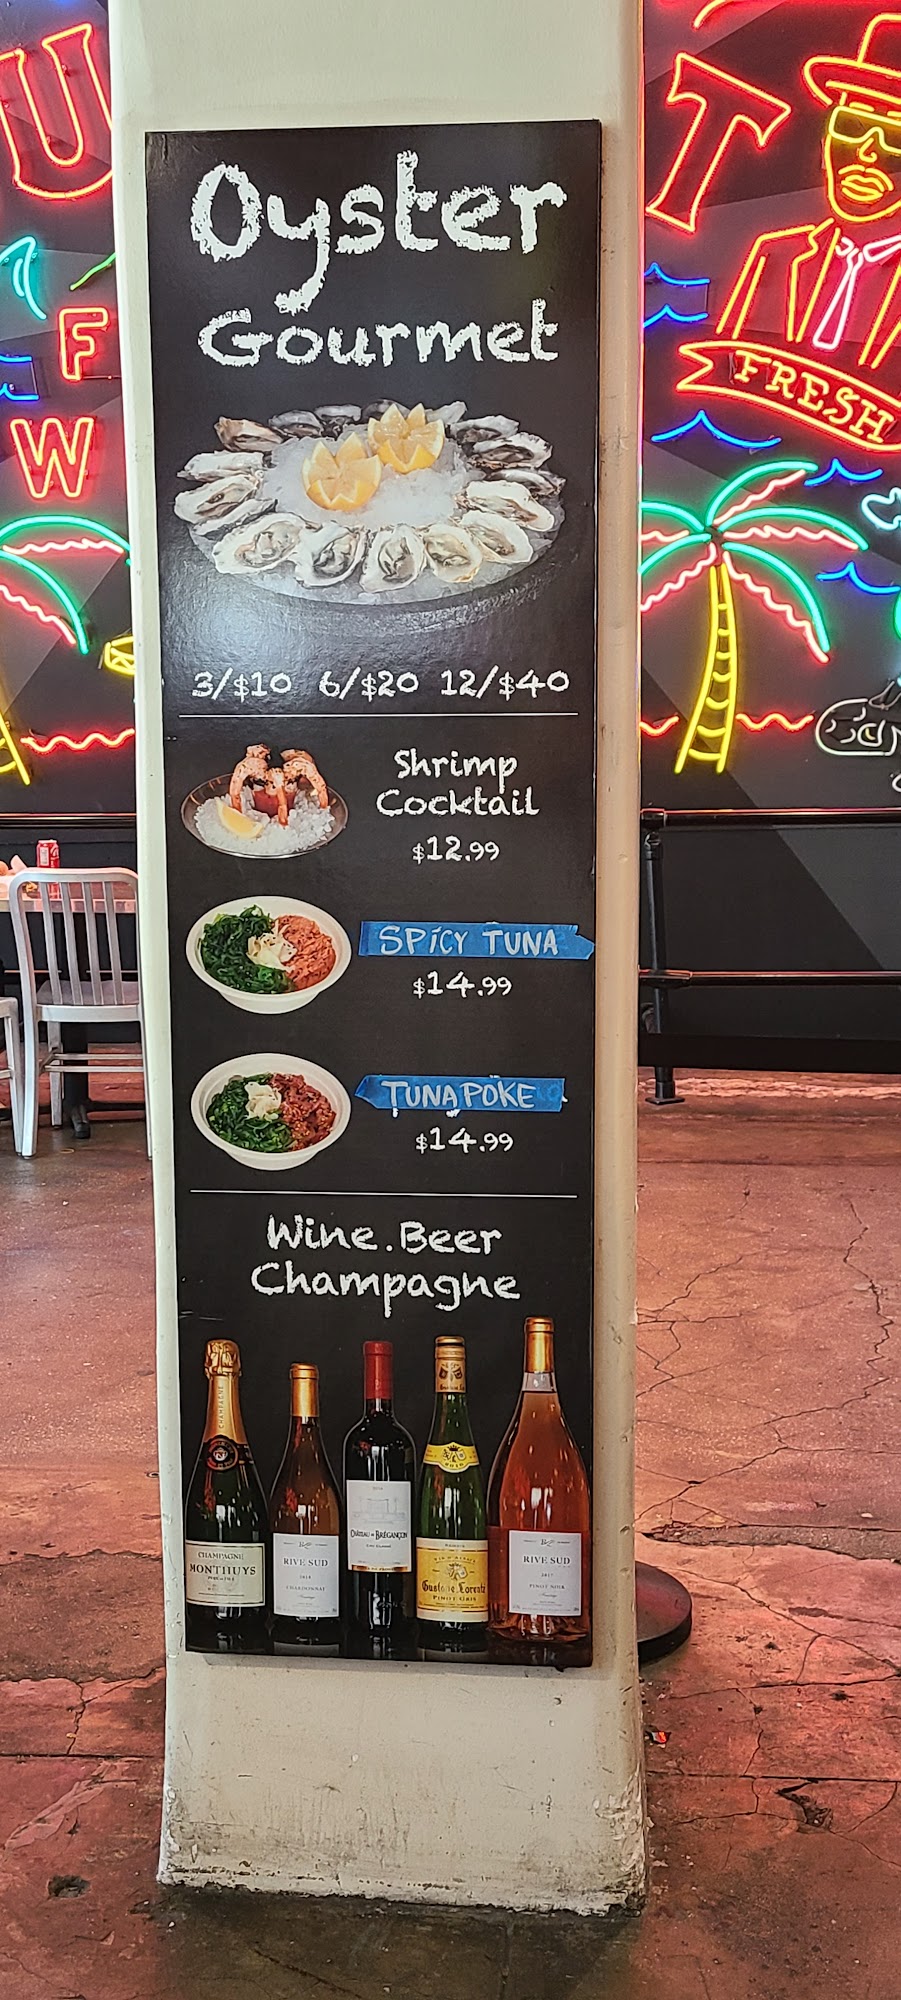 U
F
W
T
FRESH
Oyster
Gourmet
3/$10 6/$20 12/$40
Shrimp
Cocktail
$12.99
SPiCY TUNA
$14.99
TUNA POKE
$14.99
Wine.Beer
Champagne
CHAMPAGNE
MONTHUYS
RIVE SUD
CHARDONNAY
CHÂTEAU DE BRÉGANÇON
Gustave Lorentz
PINOT GRIS
RIVE SUD
2017
PINOT NOIR